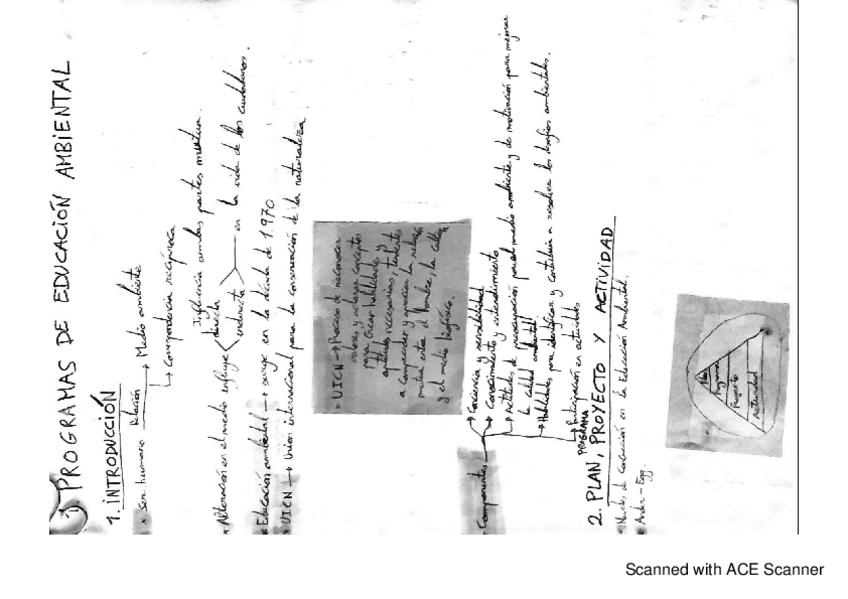 1. PROGRAMAS DE EDUCACIÓN AMBIENTAL
1. INTRODUCCIÓN
• Ser humano Relación → Medio ambiente
↳ Correspondencia recíproca
Influencia ambas partes mutua.
• Alteración en el medio influye directa
indirecta
en la vida de los ciudadanos.
• Educación ambiental → surge en la década de 1.970
• UICN → Unión internacional para la conservación de la naturaleza
• UICN → Proceso de reconocer
valores y aclarar conceptos
para crear habilidades y
aptitudes necesarias, tendentes
a comprender y apreciar la relación
mutua entre el hombre, la cultura
y el medio biofísico.
• Componentes
→ Conciencia y sensibilidad
→ Conocimiento y entendimiento
→ Actitudes de preocupación por el medio ambiente y de motivación para mejorar
la calidad ambiental.
→ Habilidades para identificar y contribuir a resolver los desafíos ambientales.
→ Participación en actividades
PROGRAMA
2. PLAN, PROYECTO Y ACTIVIDAD
• Niveles de concreción en la Educación Ambiental.
• Ander-Egg.
Plan
Programa
Proyecto
Actividad
Scanned with ACE Scanner